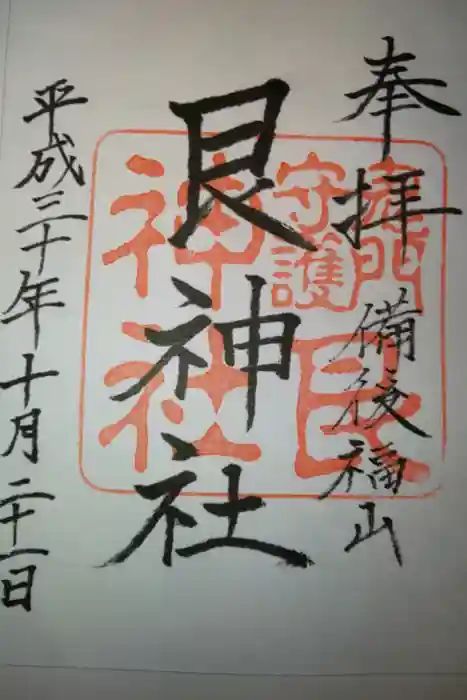 奉拝 備後福山
艮神社
鬼門
守護
艮
神社
平成三十年十月二十一日